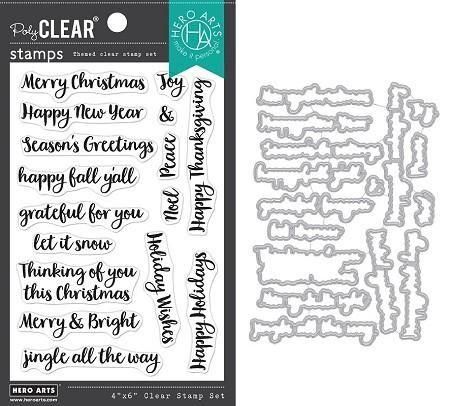 Poly CLEAR®
stamps
Themed clear stamp set
HERO ARTS
HA
make it personal.
Merry Christmas
Joy
Happy New Year
&
Season's Greetings
Peace
Happy Thanksgiving
happy fall y'all
Noel
grateful for you
let it snow
Holiday Wishes
Happy Holidays
Thinking of you
this Christmas
Merry & Bright
jingle all the way
HERO ARTS
www.heroarts.com
4"x6" Clear Stamp Set